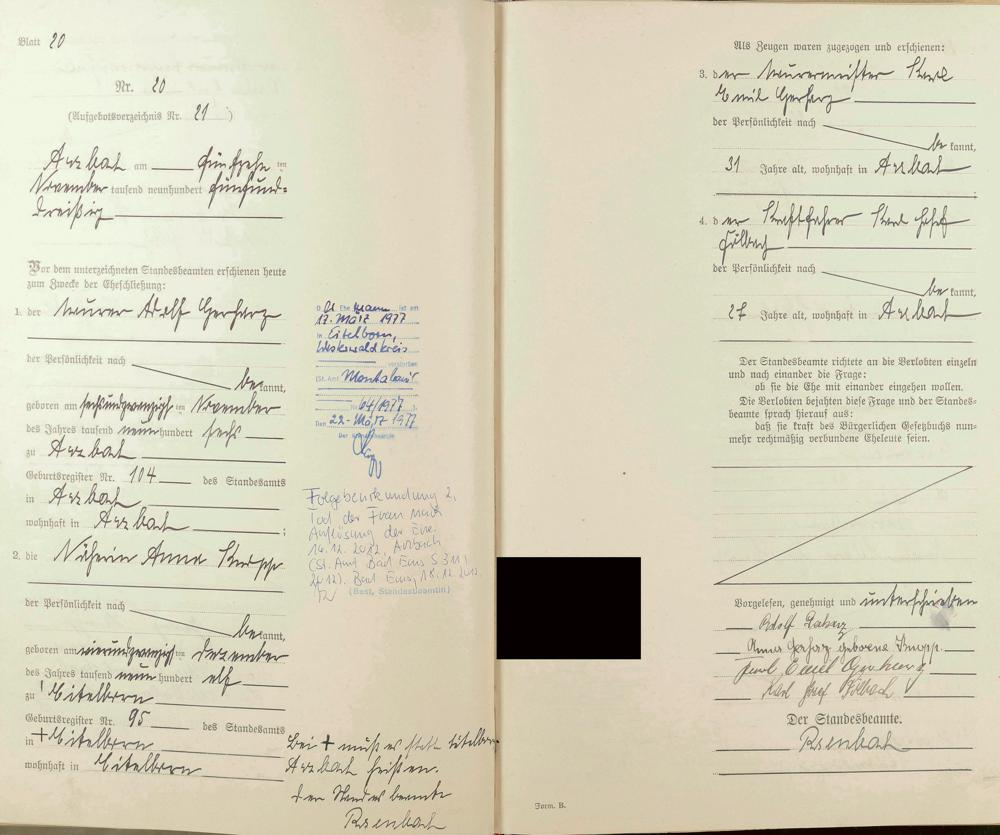 Blatt 20
Nr. 20
(Aufgebotsverzeichnis Nr. 21)
Arzbach am fünfzehn ten
November tausend neunhundert fünfund-
dreißig
Vor dem unterzeichneten Standesbeamten erschienen heute
zum Zwecke der Eheschließung:
1. der Maurer Adolf Gerharz
der Persönlichkeit nach
bekannt,
geboren am sechsundzwanzigsten November
des Jahres tausend neunhundert sechs
zu Arzbach
Geburtsregister Nr. 104 des Standesamts
in Arzbach
wohnhaft in Arzbach ;
2. die Näherin Anna Knopp
der Persönlichkeit nach
bekannt,
geboren am vierundzwanzigsten Dezember
des Jahres tausend neunhundert elf
zu Eitelborn
Geburtsregister Nr. 95 des Standesamts
in + Eitelborn
wohnhaft in Eitelborn
Bei + muß es statt Eitelborn
Arzbach heißen.
Der Standesbeamte
D Er Ehemann ist am
17. März 1977
in Eitelborn,
Westerwaldkreis
verstorben
(St. Amt Montabaur
Nr. 64/1977 ).
Den 22. März 1977
Der Standesbeamte
Folgebeurkundung 2,
Tod der Frau nach
Auflösung der Ehe.
14.12.2012, Arzbach
(St. Amt Bad Ems S 311/
2012). Bad Ems, 18.12.2012
(Best, Standesbeamtin)
Als Zeugen waren zugezogen und erschienen:
3. der Maurermeister Karl
Emil Gerharz
der Persönlichkeit nach
bekannt,
31 Jahre alt, wohnhaft in Arzbach
;
4. der Kraftfahrer Karl Josef
Fülbach
der Persönlichkeit nach
bekannt,
27 Jahre alt, wohnhaft in Arzbach
Der Standesbeamte richtete an die Verlobten einzeln
und nach einander die Frage:
ob sie die Ehe mit einander eingehen wollen.
Die Verlobten bejahten diese Frage und der Standes-
beamte sprach hierauf aus:
daß sie kraft des Bürgerlichen Gesetzbuchs nun-
mehr rechtmäßig verbundene Eheleute seien.
Vorgelesen, genehmigt und unterschrieben
Adolf Gerharz
Anna Gerharz geborene Knopp.
Karl Emil Gerharz
Karl Josef Fülbach
Der Standesbeamte.
Form. B.